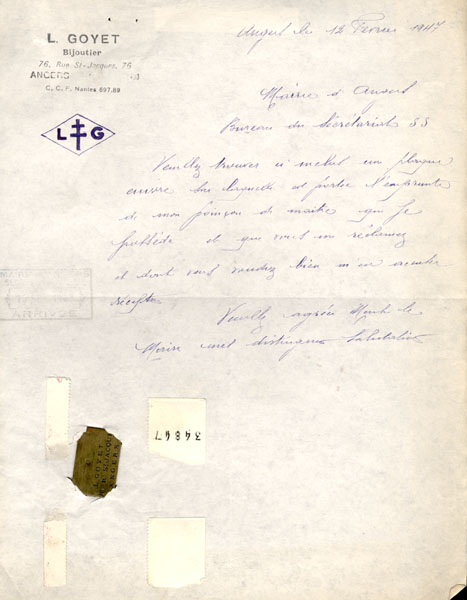 L. GOYET
Bijoutier
76, Rue St-Jacques, 76
ANGERS
C. C. P. Nantes 697.89
L G
Angers le 12 Février 1947
Mairie d'Angers
Bureau du Secrétariat SS
Veuillez trouver ci inclus une plaque
cuivre sur laquelle est portée l'empreinte
de mon poinçon de maitre que je
possède et que vous me réclamez
et dont vous voudrez bien m'en accuser
réception
Veuillez agréer Monsr le
Maire mes distinguées Salutations
ARRIVÉE
34847
L. GOYET
ANGERS